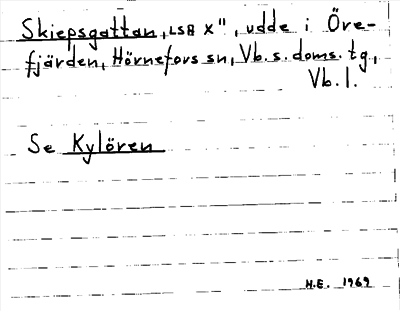 Skiepsgattan, LSB X", udde i Öre-
fjärden, Hörnefors sn, Vb. s. doms. tg,
Vb. l.
Se Kylören
H.E. 1969